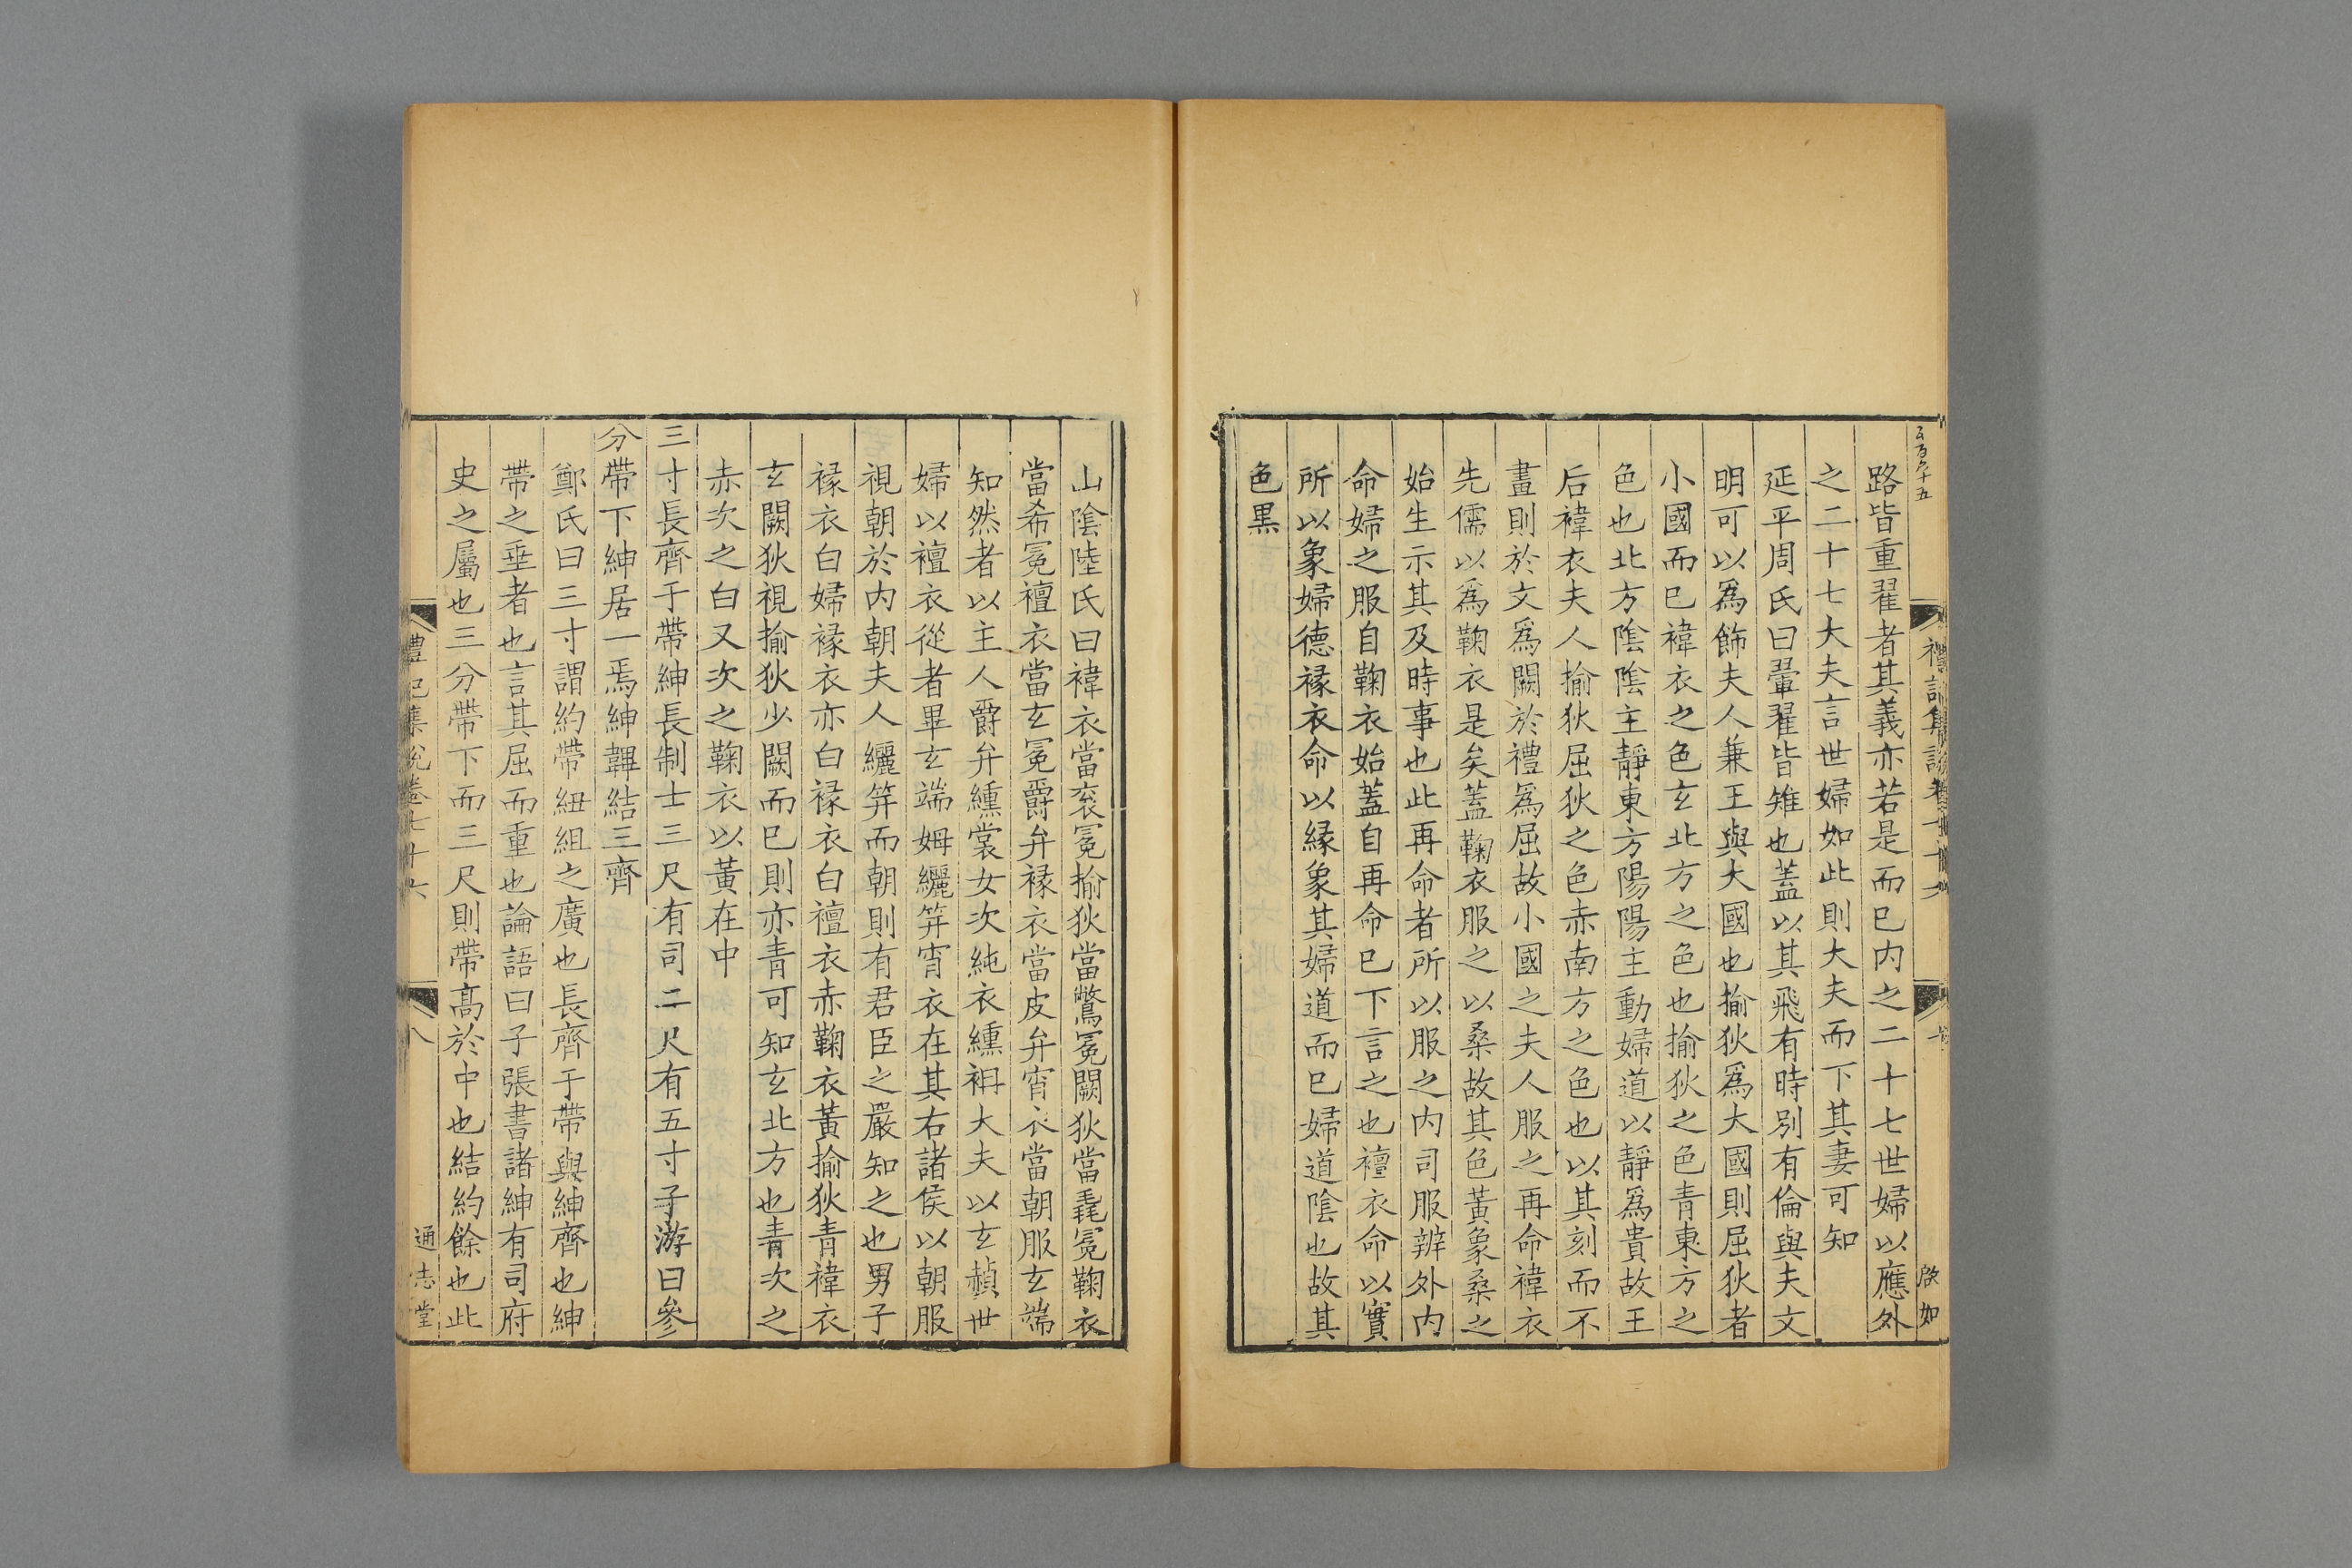 路皆重翟者其義亦若是而已内之二十七世婦以應外
之二十七大夫言世婦如此則大夫而下其妻可知
延平周氏曰翬翟皆雉也蓋以其飛有時别有倫與夫文
明可以爲飾夫人兼王與大國也揄狄爲大國則屈狄者
小國而已褘衣之色玄北方之色也揄狄之色青東方之
色也北方陰陰主靜東方陽陽主動婦道以靜爲貴故王
后褘衣夫人揄狄屈狄之色赤南方之色也以其刻而不
畫則於文爲闕於禮爲屈故小國之夫人服之再命褘衣
先儒以爲鞠衣是矣蓋鞠衣服之以桑故其色黃象桑之
始生示其及時事也此再命者所以服之内司服辨外内
命婦之服自鞠衣始蓋自再命已下言之也襢衣命以實
所以象婦德褖衣命以緣象其婦道而已婦道陰也故其
色黒
啟如
山陰陸氏曰褘衣當衮冕揄狄當鷩冕闕狄當毳冕鞠衣
當希冕襢衣當玄冕爵弁褖衣當皮弁宵衣當朝服玄端
知然者以主人爵弁纁裳女次純衣纁袡大夫以玄赬世
婦以襢衣從者畢玄端姆纚笄宵衣在其右諸侯以朝服
視朝於内朝夫人纚笄而朝則有君臣之嚴知之也男子
褖衣白婦褖衣亦白褖衣白襢衣赤鞠衣黃揄狄青褘衣
玄闕狄視揄狄少闕而已則亦青可知玄北方也青次之
赤次之白又次之鞠衣以黃在中
三寸長齊于帶紳長制士三尺有司二尺有五寸子游曰參
分帶下紳居一焉紳韠結三齊
鄭氏曰三寸謂約帶紐組之廣也長齊于帶與紳齊也紳
帶之垂者也言其屈而重也論語曰子張書諸紳有司府
史之屬也三分帶下而三尺則帶高於中也結約餘也此
禮記集說卷七十六
八
通志堂